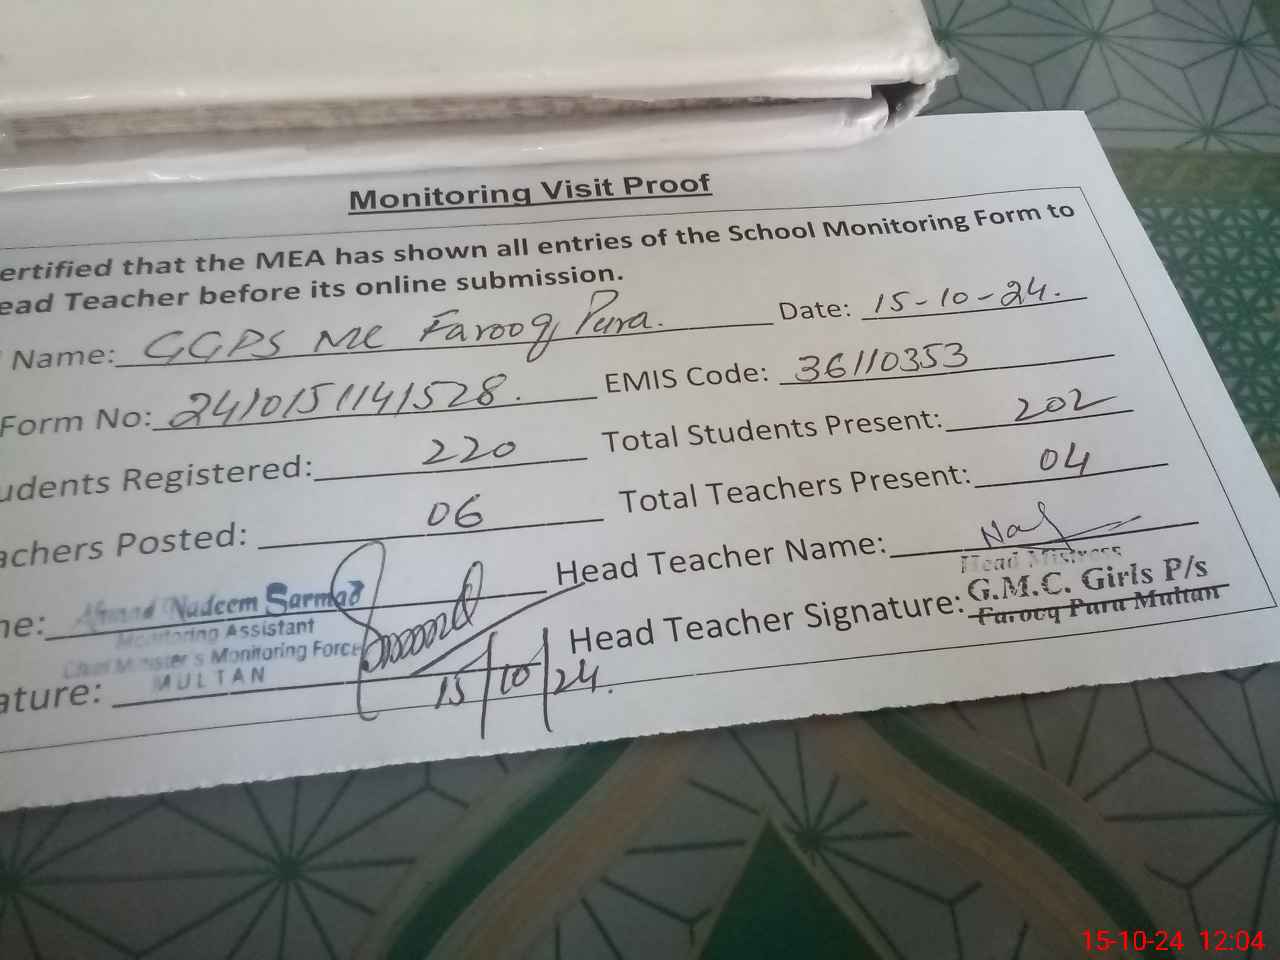 Monitoring Visit Proof
ertified that the MEA has shown all entries of the School Monitoring Form to
ead Teacher before its online submission.
Name: GGPS MC Farooq Pura. Date: 15-10-24.
Form No: 2410151141528. EMIS Code: 36110353
udents Registered: 220 Total Students Present: 202
achers Posted: 06 Total Teachers Present: 04
Head Teacher Name:
ne: Ahmad Nadeem Sarmad
Head Mistress
Monitoring Assistant
G.M.C. Girls P/s
Head Teacher Signature:
Farooq Pura Multan
Chief Minister's Monitoring Force
ature: MULTAN
15/10/24.
15-10-24 12:04